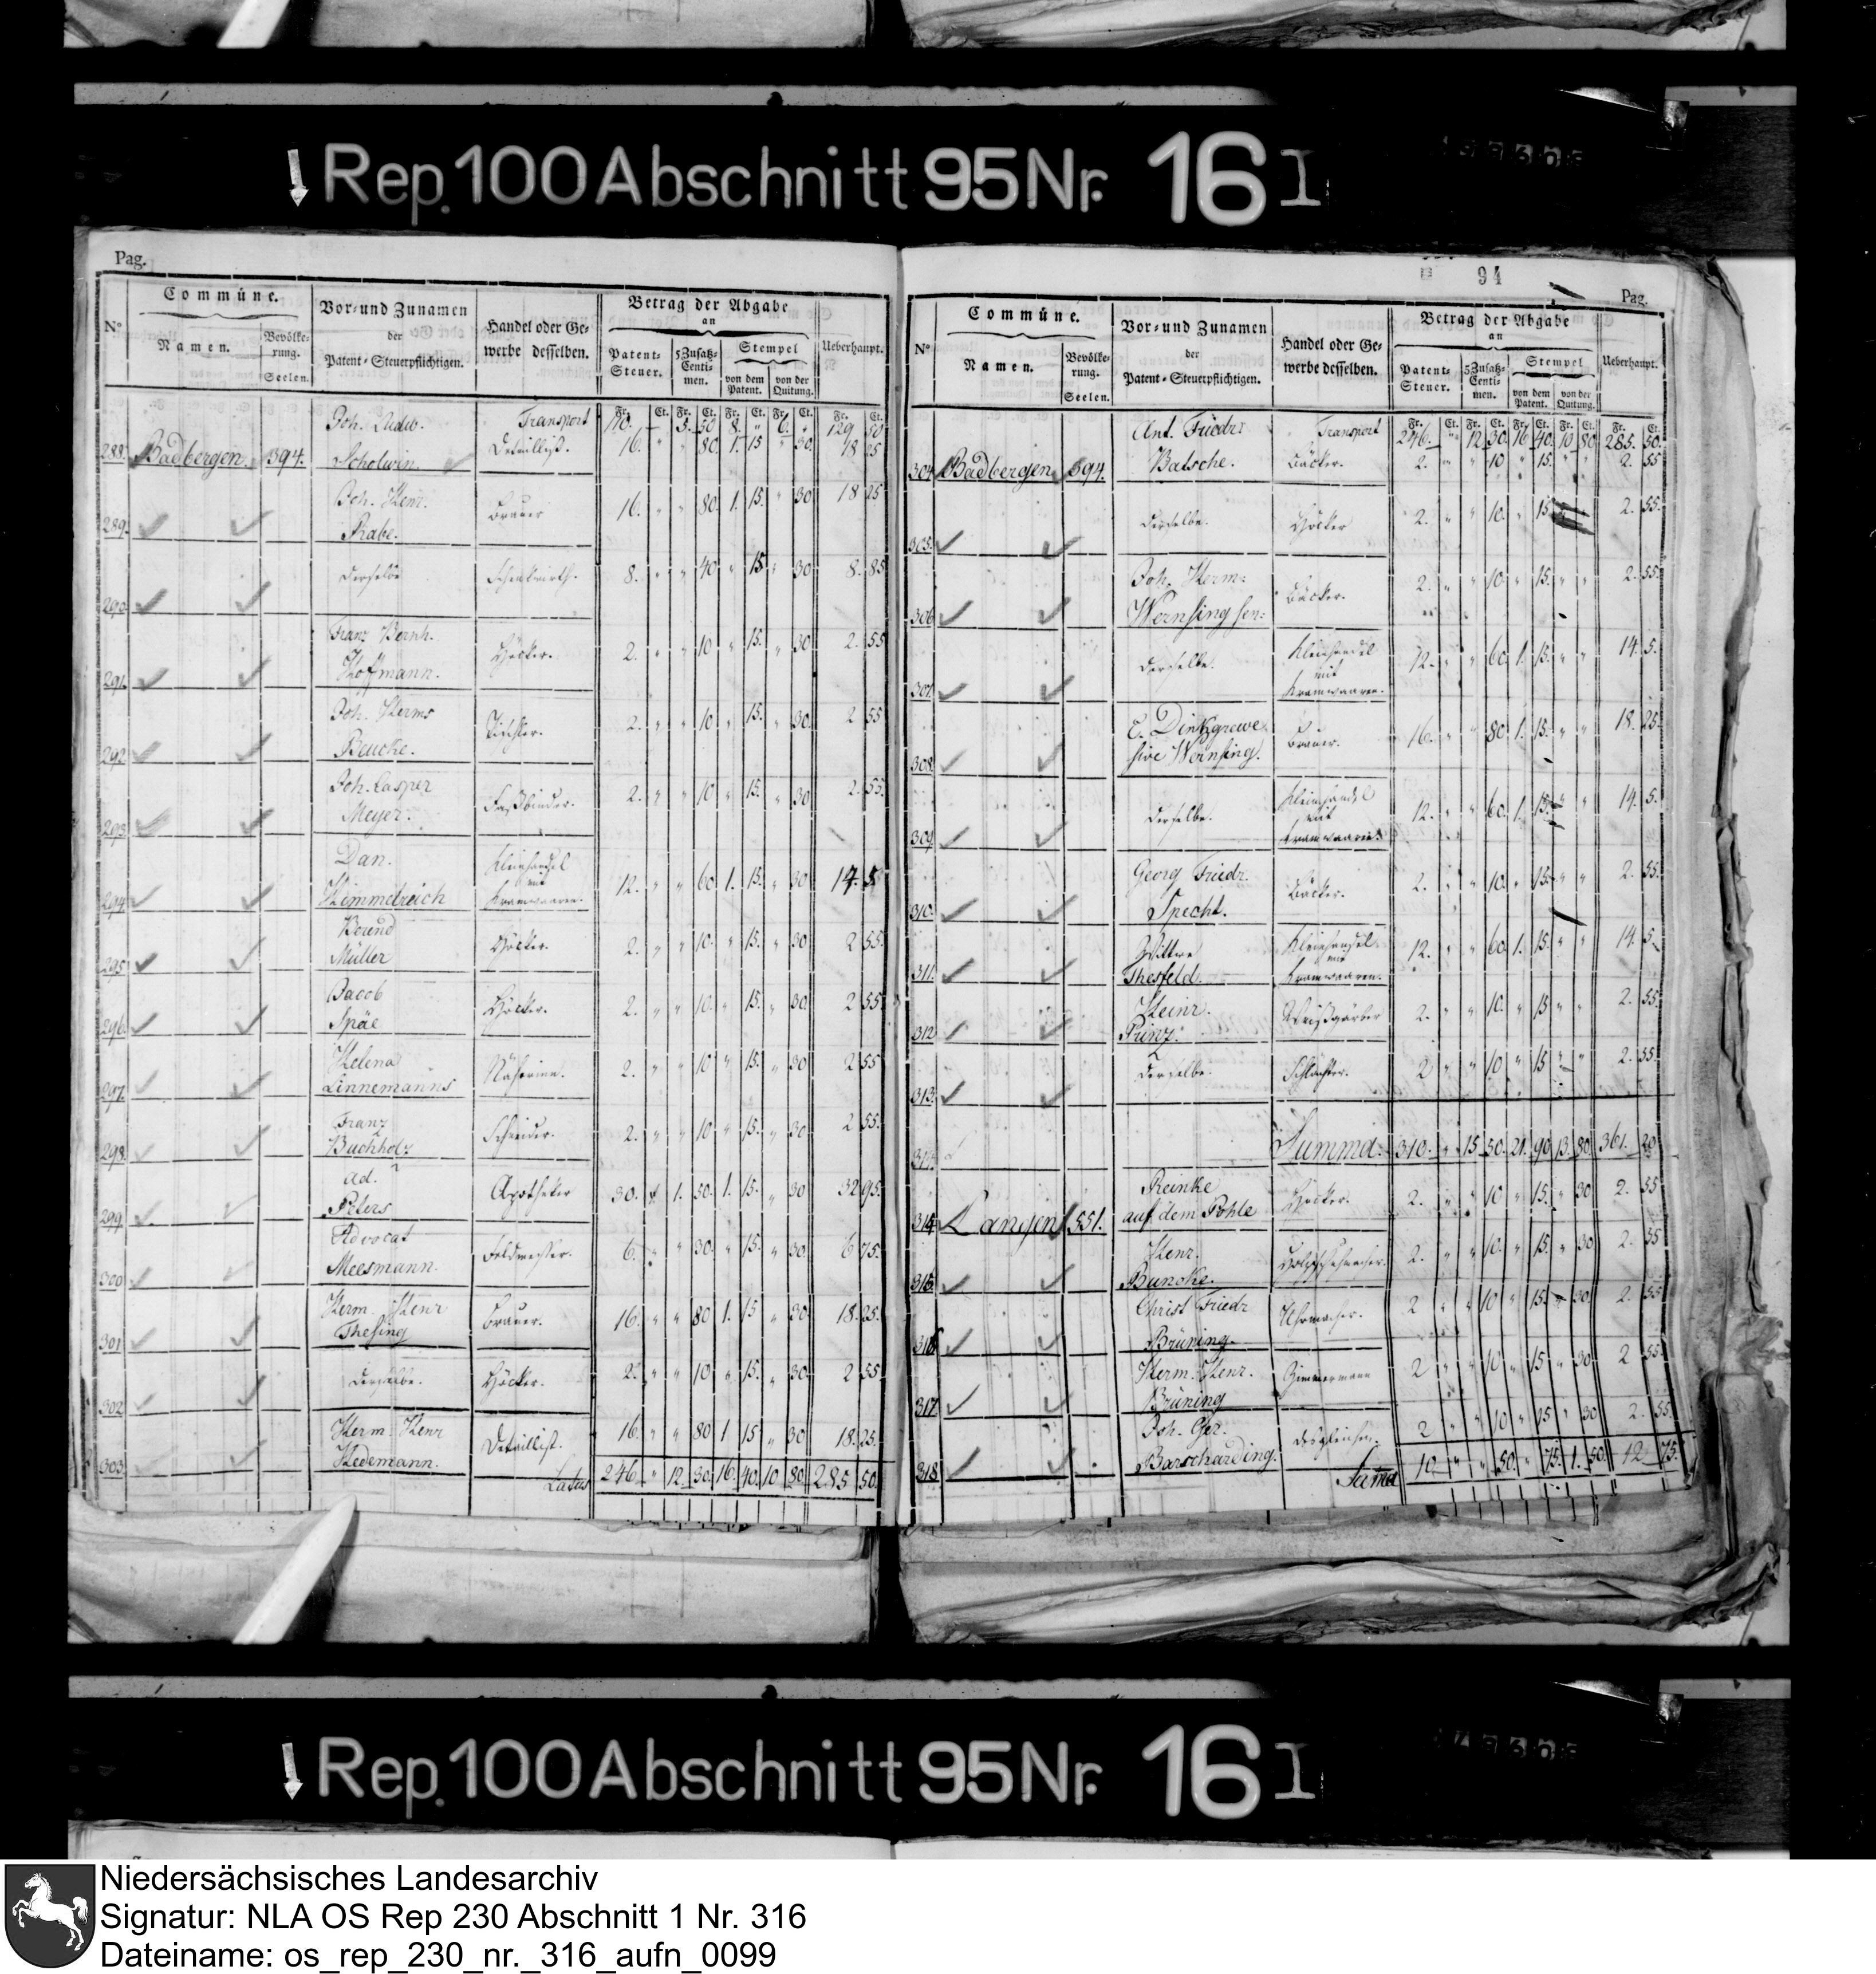 Rep. 100 Abschnitt 95 Nr. 16 I
Pag.
N° Commúne. Vor= und Zunamen der Patent=Steuerpflichtigen. Handel oder Ge=werbe desselben. Betrag der Abgabe an Ueberhaupt.
Namen. Bevölke=rung. Seelen. Patent=Steuer. 5 Zusatz=Centi=men. Stempel von dem Patent. von der Quitung.
Fr. Ct. Fr. Ct. Fr. Ct. Fr. Ct. Fr. Ct.
Transport 110. — 5. 50 8. " 6. " 129 50
288. Badbergen. 394. Joh. Ludw. Scholwin. Detaillist. 16. " " 80. 1. 15 " 30. 18 25
289. Joh. Henr. Rabe. Brauer 16. " " 80. 1. 15. " 30 18 25
290. Derselbe Schenkwirth. 8. " " 40 " 15 " 30 8. 85
291. Franz Bernh. Hoffmann. Höcker. 2. " " 10 " 15. " 30 2. 55
292. Joh. Herms Beucke. Tischler. 2. " " 10 " 15. " 30. 2 55
293. Joh. Casper Meyer. Faßbinder. 2. " " 10 " 15. " 30 2. 55.
294. Dan. Himmelreich Kleinhandel mit Kramwaaren. 12. " " 60 1. 15. " 30 14. 5.
295. Müller Höcker. 2. " " 10. " 15. " 30 2 55.
296. Jacob Späe Höcker. 2. " " 10. " 15. " 30 2 55
297. Helena Linnemanns Näherinn. 2. " " 10 " 15. " 30 2 55
298. Franz Buchholz Schneider. 2. " " 10 " 15. " 30 2 55.
299 Ad. Peters Apotheker 30. " 1. 50. 1. 15. " 30 32 95.
300 Advocat Meesmann. Feldmesser. 6. " " 30. " 15. " 30. 6 75.
301 Herm. Henr Thesing Brauer. 16. " " 80 1. 15 " 30 18. 25.
302 Derselbe. Höcker. 2. " " 10 " 15. " 30 2 55
303. Herm. Henr Hedemann. Detaillist. 16. " " 80 1 15 " 30 18. 25.
Latus 246. " 12. 30. 16. 40. 10 80. 285 50.
94
Pag.
N° Commúne. Vor= und Zunamen der Patent=Steuerpflichtigen. Handel oder Ge=werbe desselben. Betrag der Abgabe an Ueberhaupt.
Namen. Bevölke=rung. Seelen. Patent=Steuer. 5 Zusatz=Centi=men. Stempel von dem Patent. von der Quitung.
Fr. Ct. Fr. Ct. Fr. Ct. Fr. Ct. Fr. Ct.
Transport 246. " 12 30. 16 40. 10 80 285. 50.
304 Badbergen 394. Ant. Friedr: Batsche. Bäcker. 2. " " 10 " 15. " " 2. 55
305. Derselbe. Höcker 2. " " 10. " 15 2. 55.
306 Joh. Herm: Wernsing sen: Bäcker. 2. " " 10. " 15. " " 2. 55.
307 Derselbe. Kleinhandel mit Kramwaaren. 12. " " 60. 1. 15. " " 14. 5.
308. C. Dinkgrewe sive Wernsing. Brauer. 16. " " 80 1. 15. " " 18. 25.
309. Derselbe. Kleinhandel mit Kramwaaren. 12. " " 60. 1. 15. " " 14. 5.
310. Georg Friedr. Specht. Bäcker. 2. " " 10. " 15. " " 2. 55.
311. Wittwe Thesfeld. Kleinhandel mit Kramwaaren. 12. " " 60. 1. 15. " " 14. 5.
312 Heinr. Prinz. Weißgärber 2. " " 10. " 15 " " 2. 55.
313. Derselbe. Schlachter. 2 " " 10 " 15 " " 2. 55.
Summa. 310. " 15. 50. 21. 90. 13. 80. 361. 20
314 Langen 551. Reinke auf dem Pohle Höcker. 2. " " 10 " 15. " 30 2. 55
315. Henr. Buncke. Holzschuhmacher. 2. " " 10. " 15. " 30 2. 55
316 Christ Friedr Brüning. Uhrmacher. 2 " " 10 " 15. " 30. 2. 55
317. Herm. Henr. Brüning Zimmermann 2 " " 10 " 15 " 30 2 55.
318. Joh. Ger. Barscharding. desgleichen. 2 " " 10 " 15 " 30 2. 55.
Suma 10 " " 50. " 75. 1. 50. 12. 75.
Rep. 100 Abschnitt 95 Nr. 16 I
Niedersächsisches Landesarchiv
Signatur: NLA OS Rep 230 Abschnitt 1 Nr. 316
Dateiname: os_rep_230_nr._316_aufn_0099